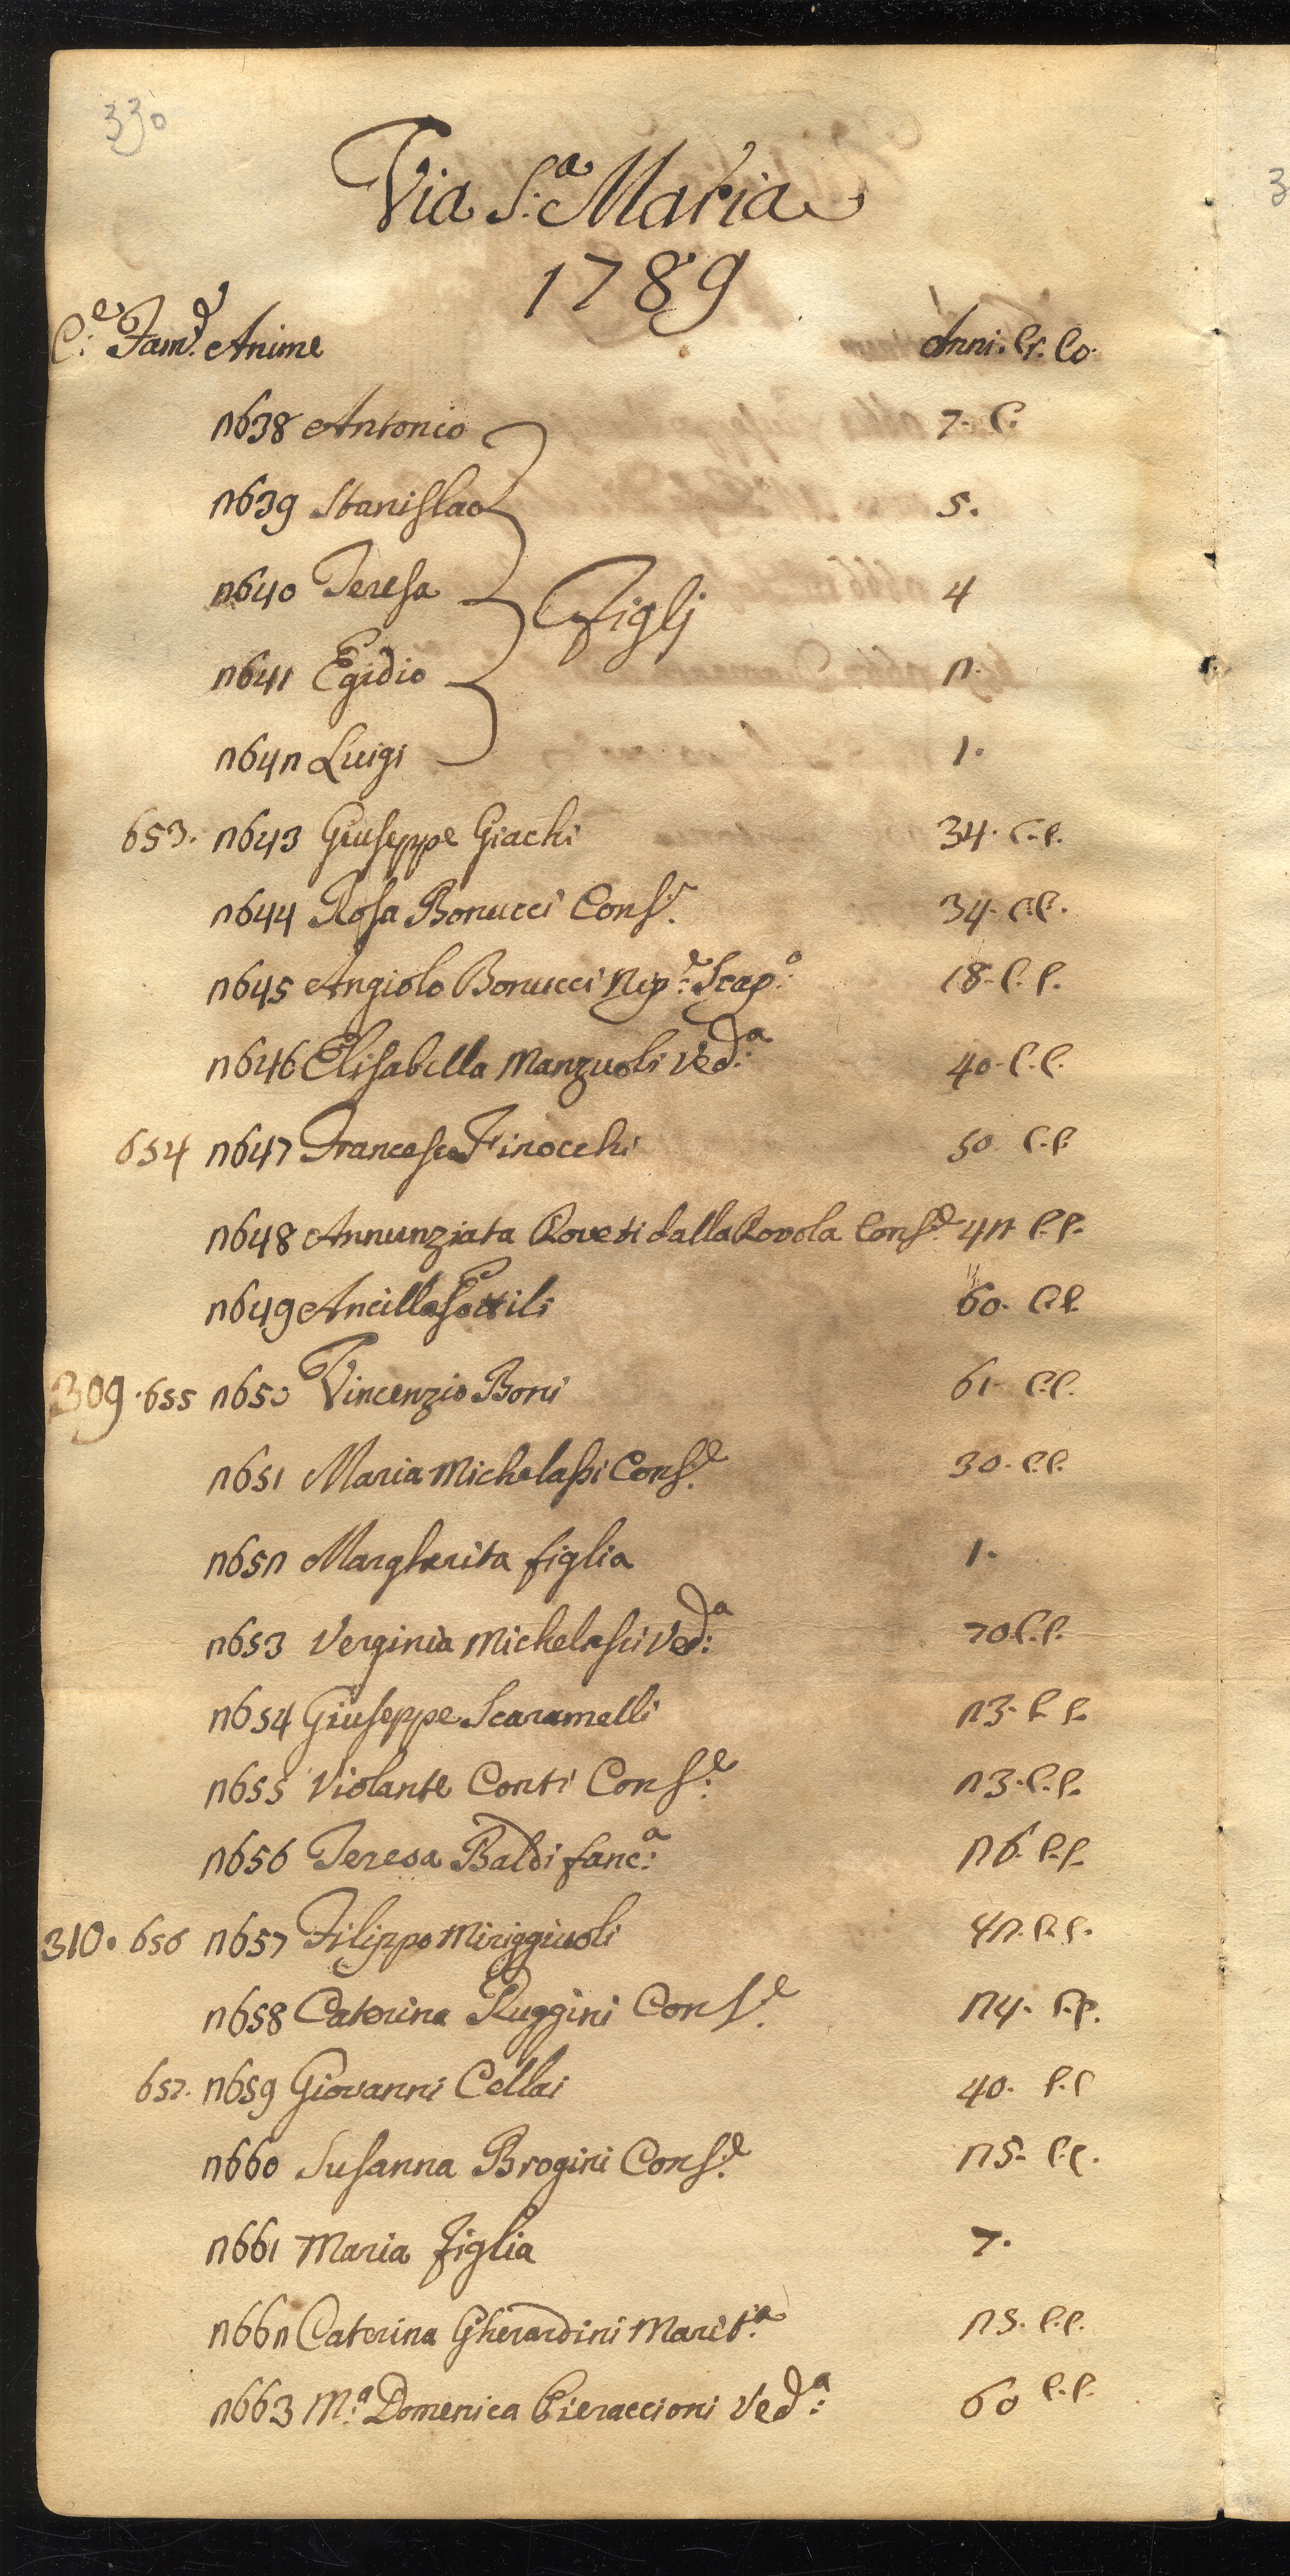 330
Via S.a Maria
1789
C.e Fam.e Anime Anni. Cr. Co.
2638 Antonio 7. C.
2639 Stanislao 5.
2640 Teresa 4
Figlj
2641 Egidio 2.
2642 Luigi 1.
653. 2643 Giuseppe Giachi 34. C.C.
2644 Rosa Bonucci Cons.e 34. C.C.
2645 Angiolo Bonucci Nip.e Scap.o 18. C.C.
2646 Elisabella Manzuoli Ved.a 40. C.C.
654 2647 Francesco Finocchi 50 C.C.
2648 Annunziata Roveti dalla Rovola Cons.e 42 C.C.
2649 Ancilla 60. C.C.
309. 655 2650 Vincenzio Boni 61. C.C.
2651 Maria Michelassi Cons.e 30. C.C.
2652 Margherita figlia 1.
2653 Verginia Michelassi Ved.a 70 C.C.
2654 Giuseppe Scaramelli 23. C.C.
2655 Violante Conti Cons.e 23. C.C.
2656 Teresa Baldi fanc.a 26. C.C.
310. 656 2657 Filippo Miriggiuoli 42. C.C.
2658 Caterina Ruggini Cons.e 24. C.C.
657. 2659 Giovanni Cellai 40. C.C
2660 Susanna Brogini Cons.e 25. C.C.
2661 Maria Figlia 7.
2662 Caterina Gherardini Marit.a 25. C.C.
2663 M.a Domenica Pieraccioni Ved.a 60 C.C.